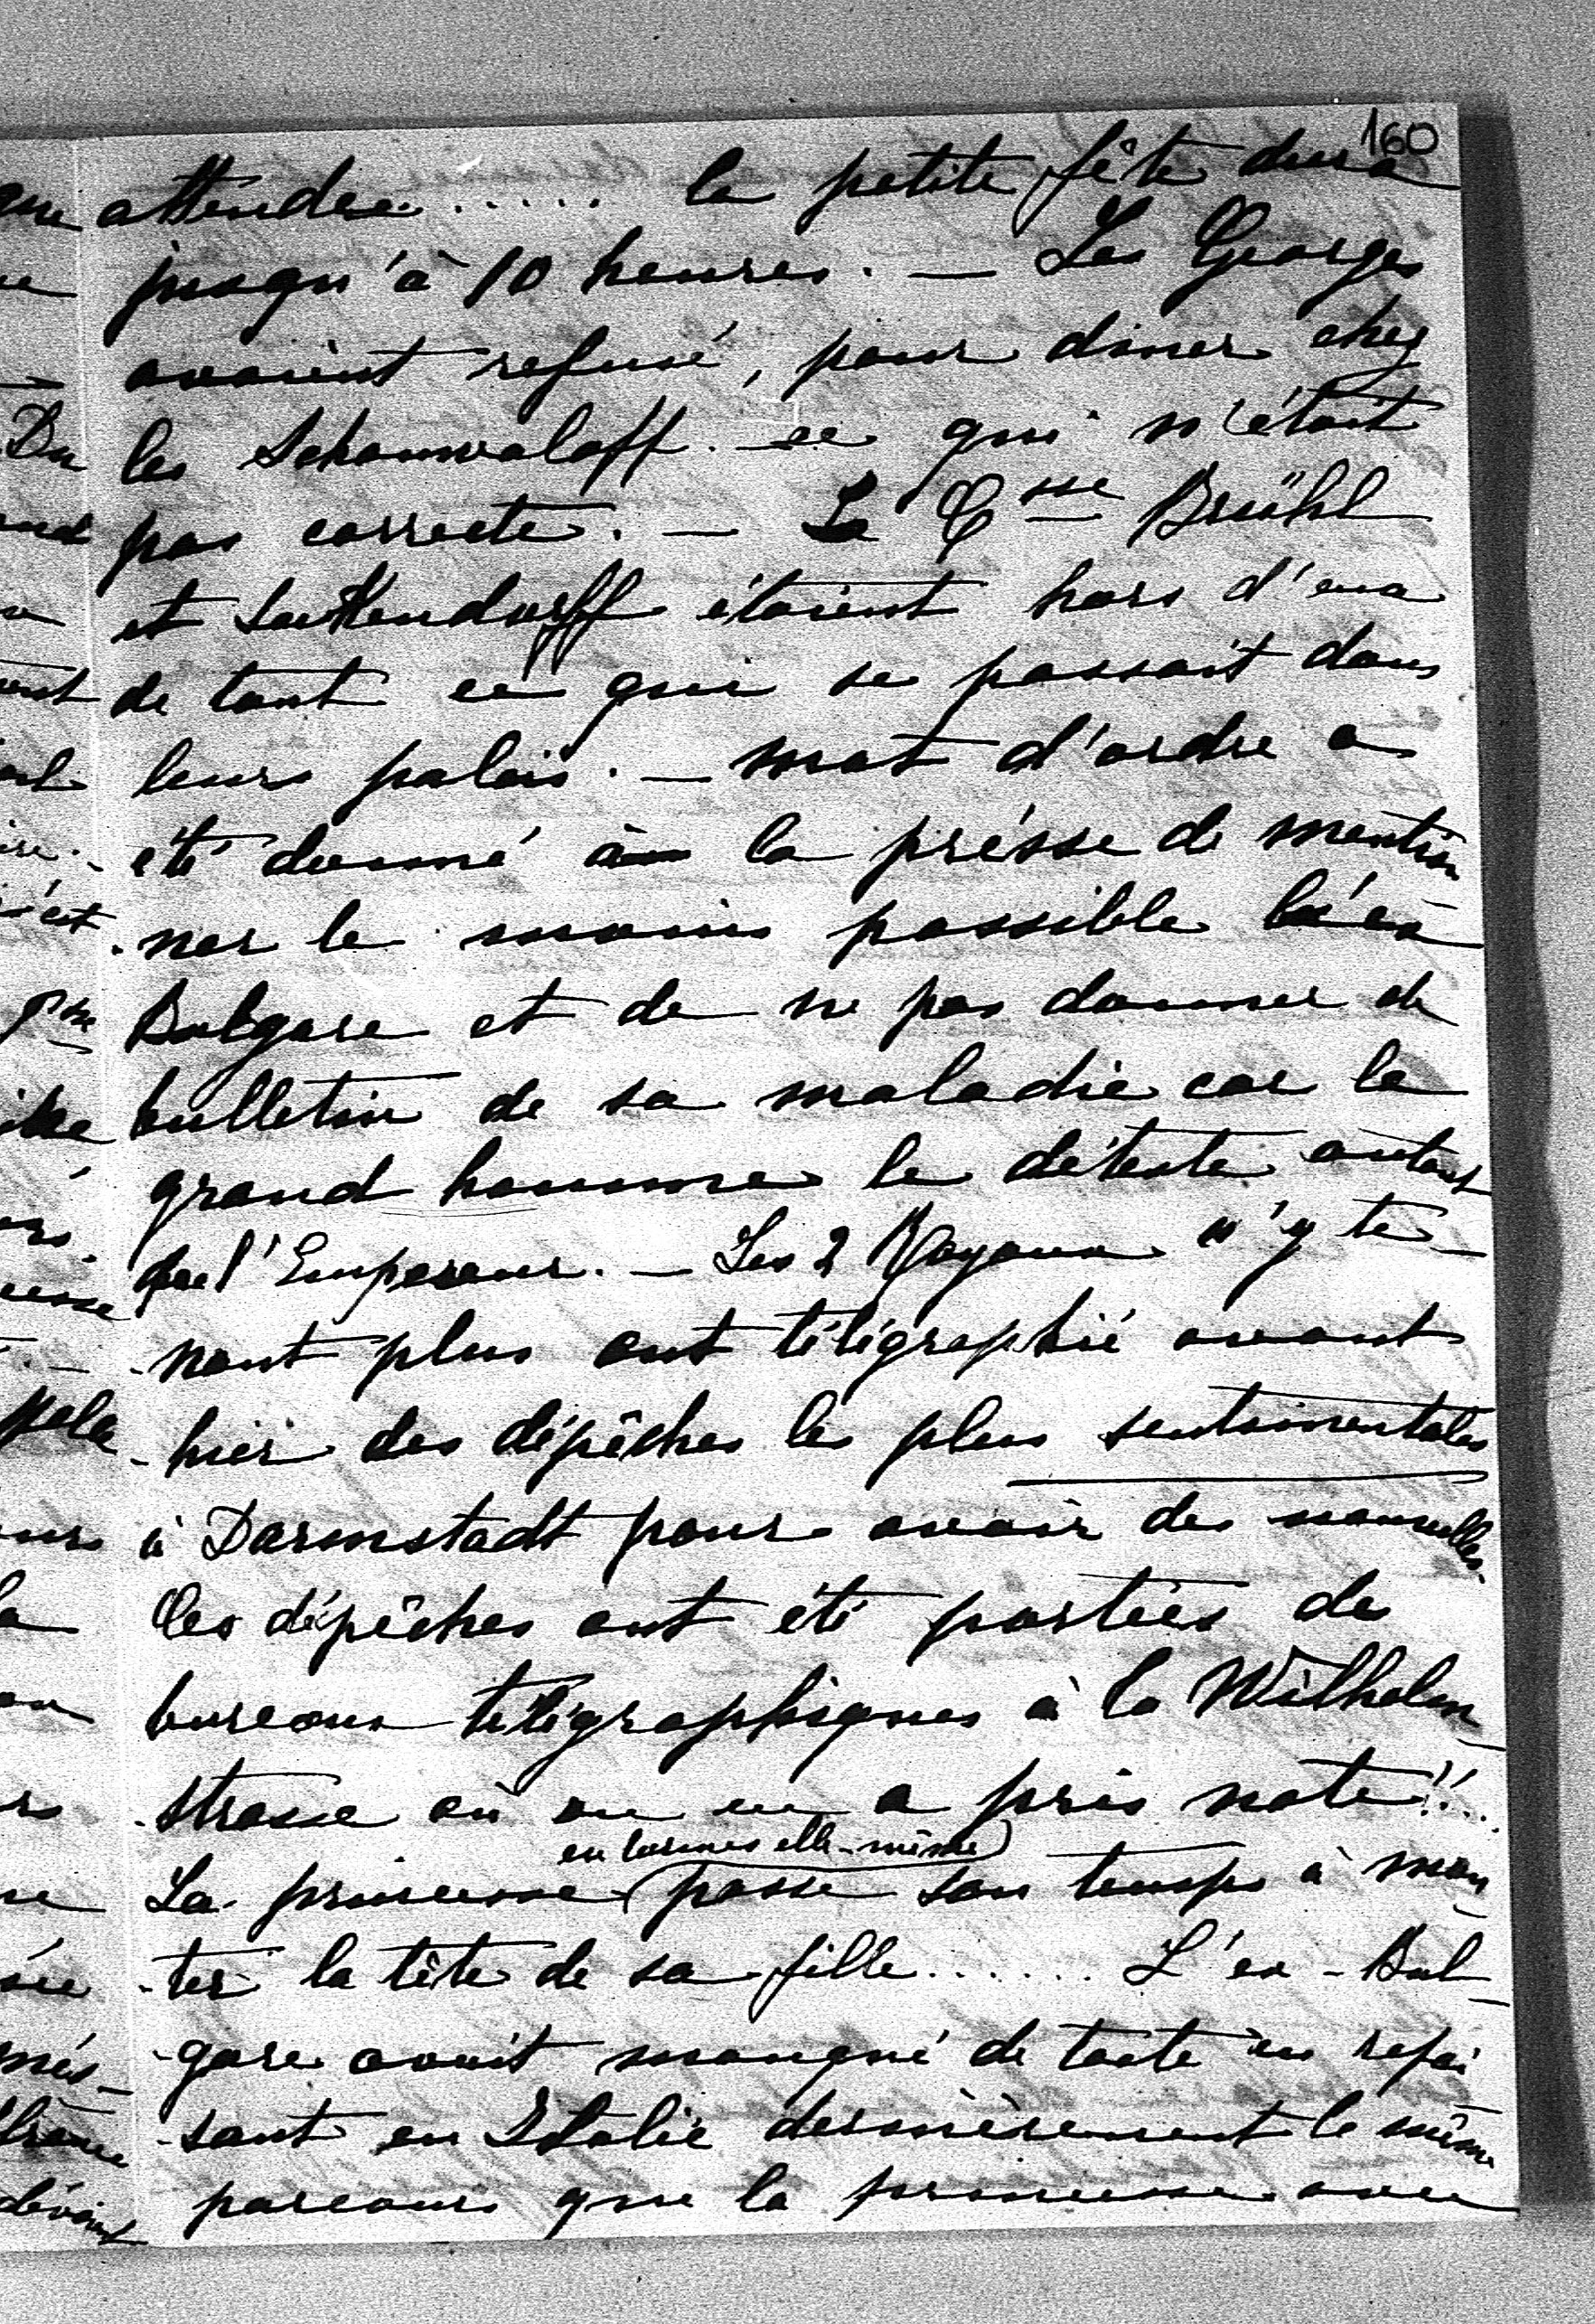 160
attendre ..... la petite fête dura
jusqu'à 10 heures. — Les Georges
avaient refusé, pour diner chez
les Schouwaloff. ce qui n'était
pas correcte. — La Csse Brühl
et Seckendorff étaient hors d'eux
de tout ce qui se passait dans
leurs palais. — mot d'ordre a
été donné à la présse de mention
ner le moins possible l'ex
Bulgare et de ne pas donner de
bulletin de sa maladie car le
grand homme le déteste autant
que l'Empereur. — Les 2 Royaux n'y te-
-nant plus ont télégraphié avant
-hier des dépêches les plus sentimentales
à Darmstadt pour avoir des nouvelles.
Ces dépêches ont été portées des
bureaux télégraphiques à la Wilhelm-
-strasse où on en a pris note!!...
en larmes elle-même
La princesse passe son temps à mon-
-ter la tête de sa fille...... L'ex-Bul-
-gare avait manqué de tacte en refai
-sant en Italie dernièrement le même
parcours que la princesse avec